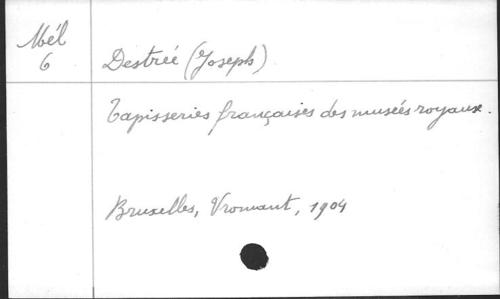 Mél
6
Destrée (Joseph)
Tapisseries françaises des musées royaux.
Bruxelles, Vromant, 1904